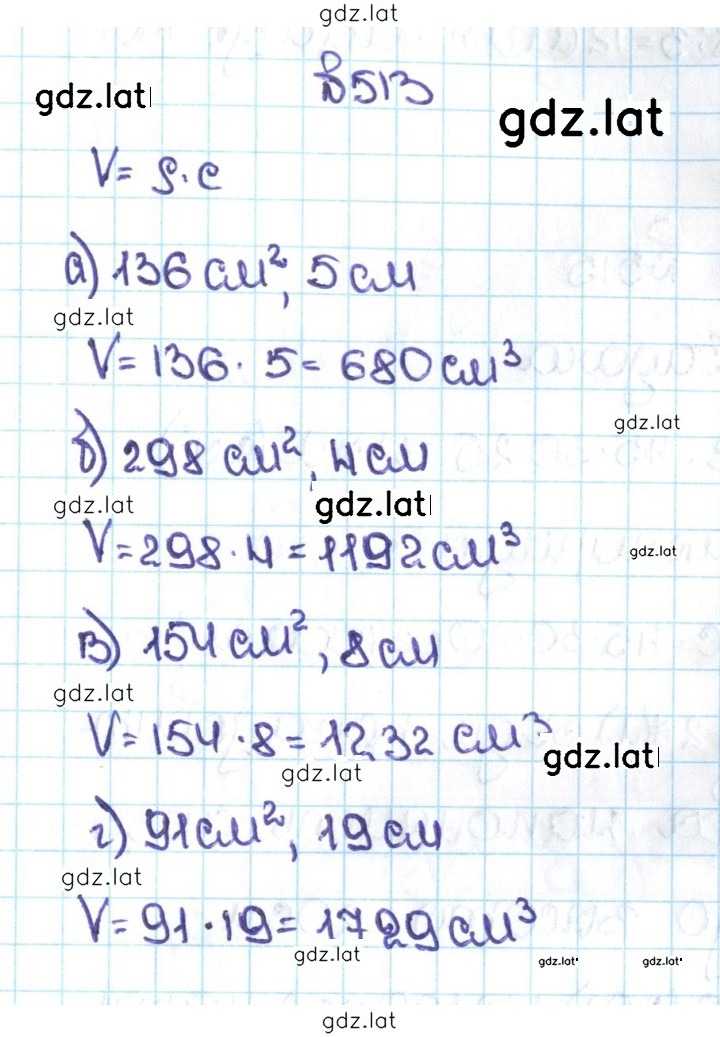 gdz.lat
gdz.lat
№513
gdz.lat
V= S·c
а) 136 см², 5 см
gdz.lat
V= 136· 5= 680 см³
gdz.lat
б) 298 см², 4 см
gdz.lat
gdz.lat
V=298·4=1192 см³
gdz.lat
в) 154 см², 8 см
gdz.lat
V= 154·8= 1232 см³
gdz.lat
gdz.lat
г) 91 см², 19 см
gdz.lat
V= 91·19= 1729 см³
gdz.lat
gdz.lat
gdz.lat
gdz.lat